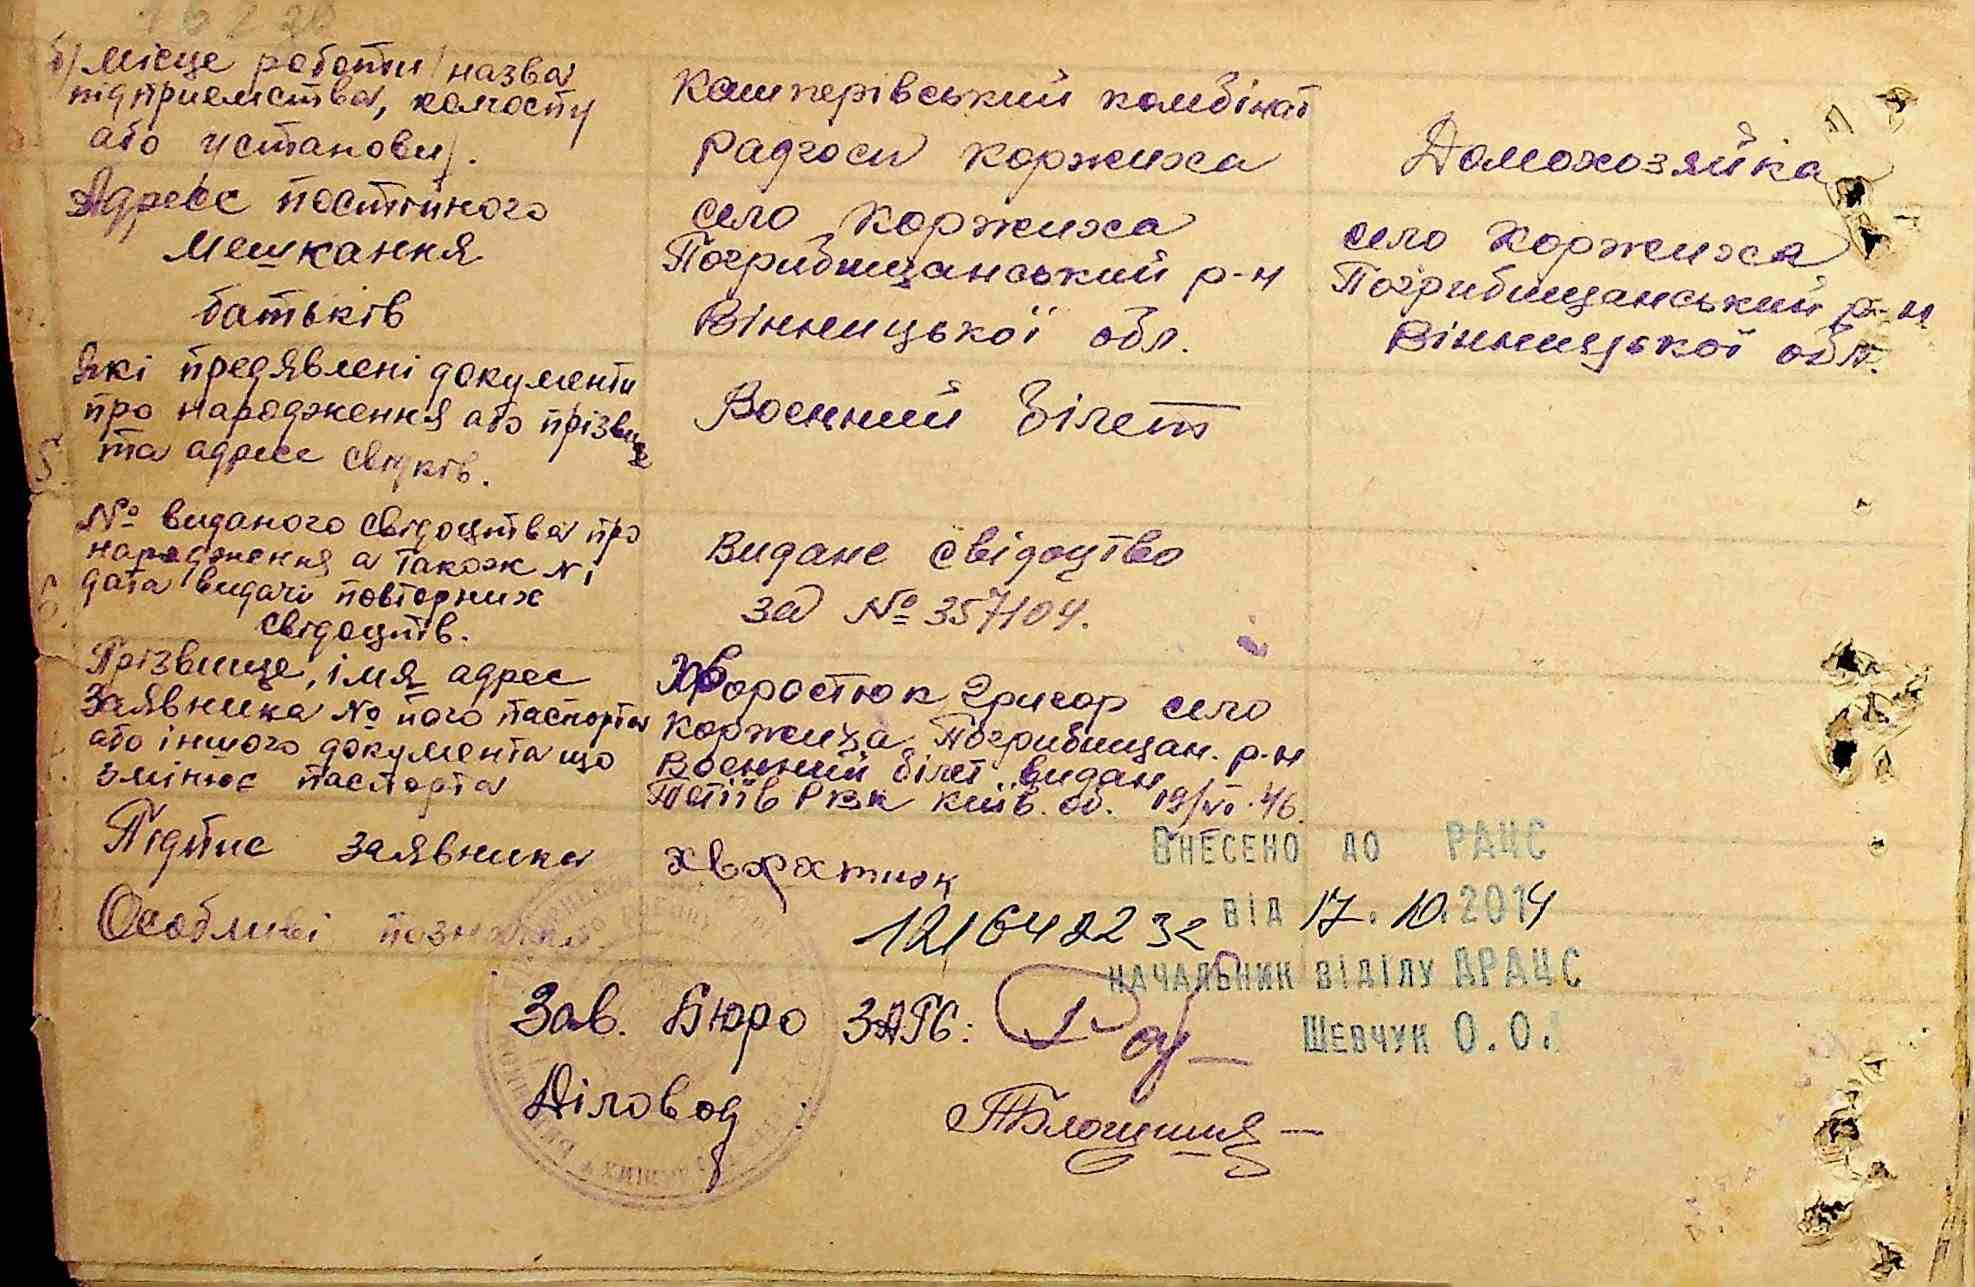 б) Місце роботи /назва
підприємства, колгоспу
або установи/.
Кашперівський комбінат
Радгосп Коржиха
Домохозяйка
Адрес постійного
мешкання
батьків
село Коржиха
Погрибищанський р-н
Вінницької обл.
село Коржиха
Погрибищанський р-н
Вінницької обл.
Які предявлені документи
про народження або прізвище
та адрес свідків.
Воєнний білет
№ виданого свідоцтва про
народження а також № і
дата видачі повторних
свідоцтв.
Видане свідоцтво
за № 357104.
Прізвище, імя адрес
Заявника № його паспорта
або іншого документа що
змінює паспорта
Хворостюк Григор село
Коржиха Погрибищан. р-н
Воєнний білет видан
РВК Київ. об. 19/VI.46.
Підпис заявника
Особливі
ВНЕСЕНО ДО РАЦС
ВІД 17.10.2014
НАЧАЛЬНИК ВІДІЛУ ДРАЦС
ШЕВЧУК О.О.
Зав. Бюро ЗАГС:
Діловод